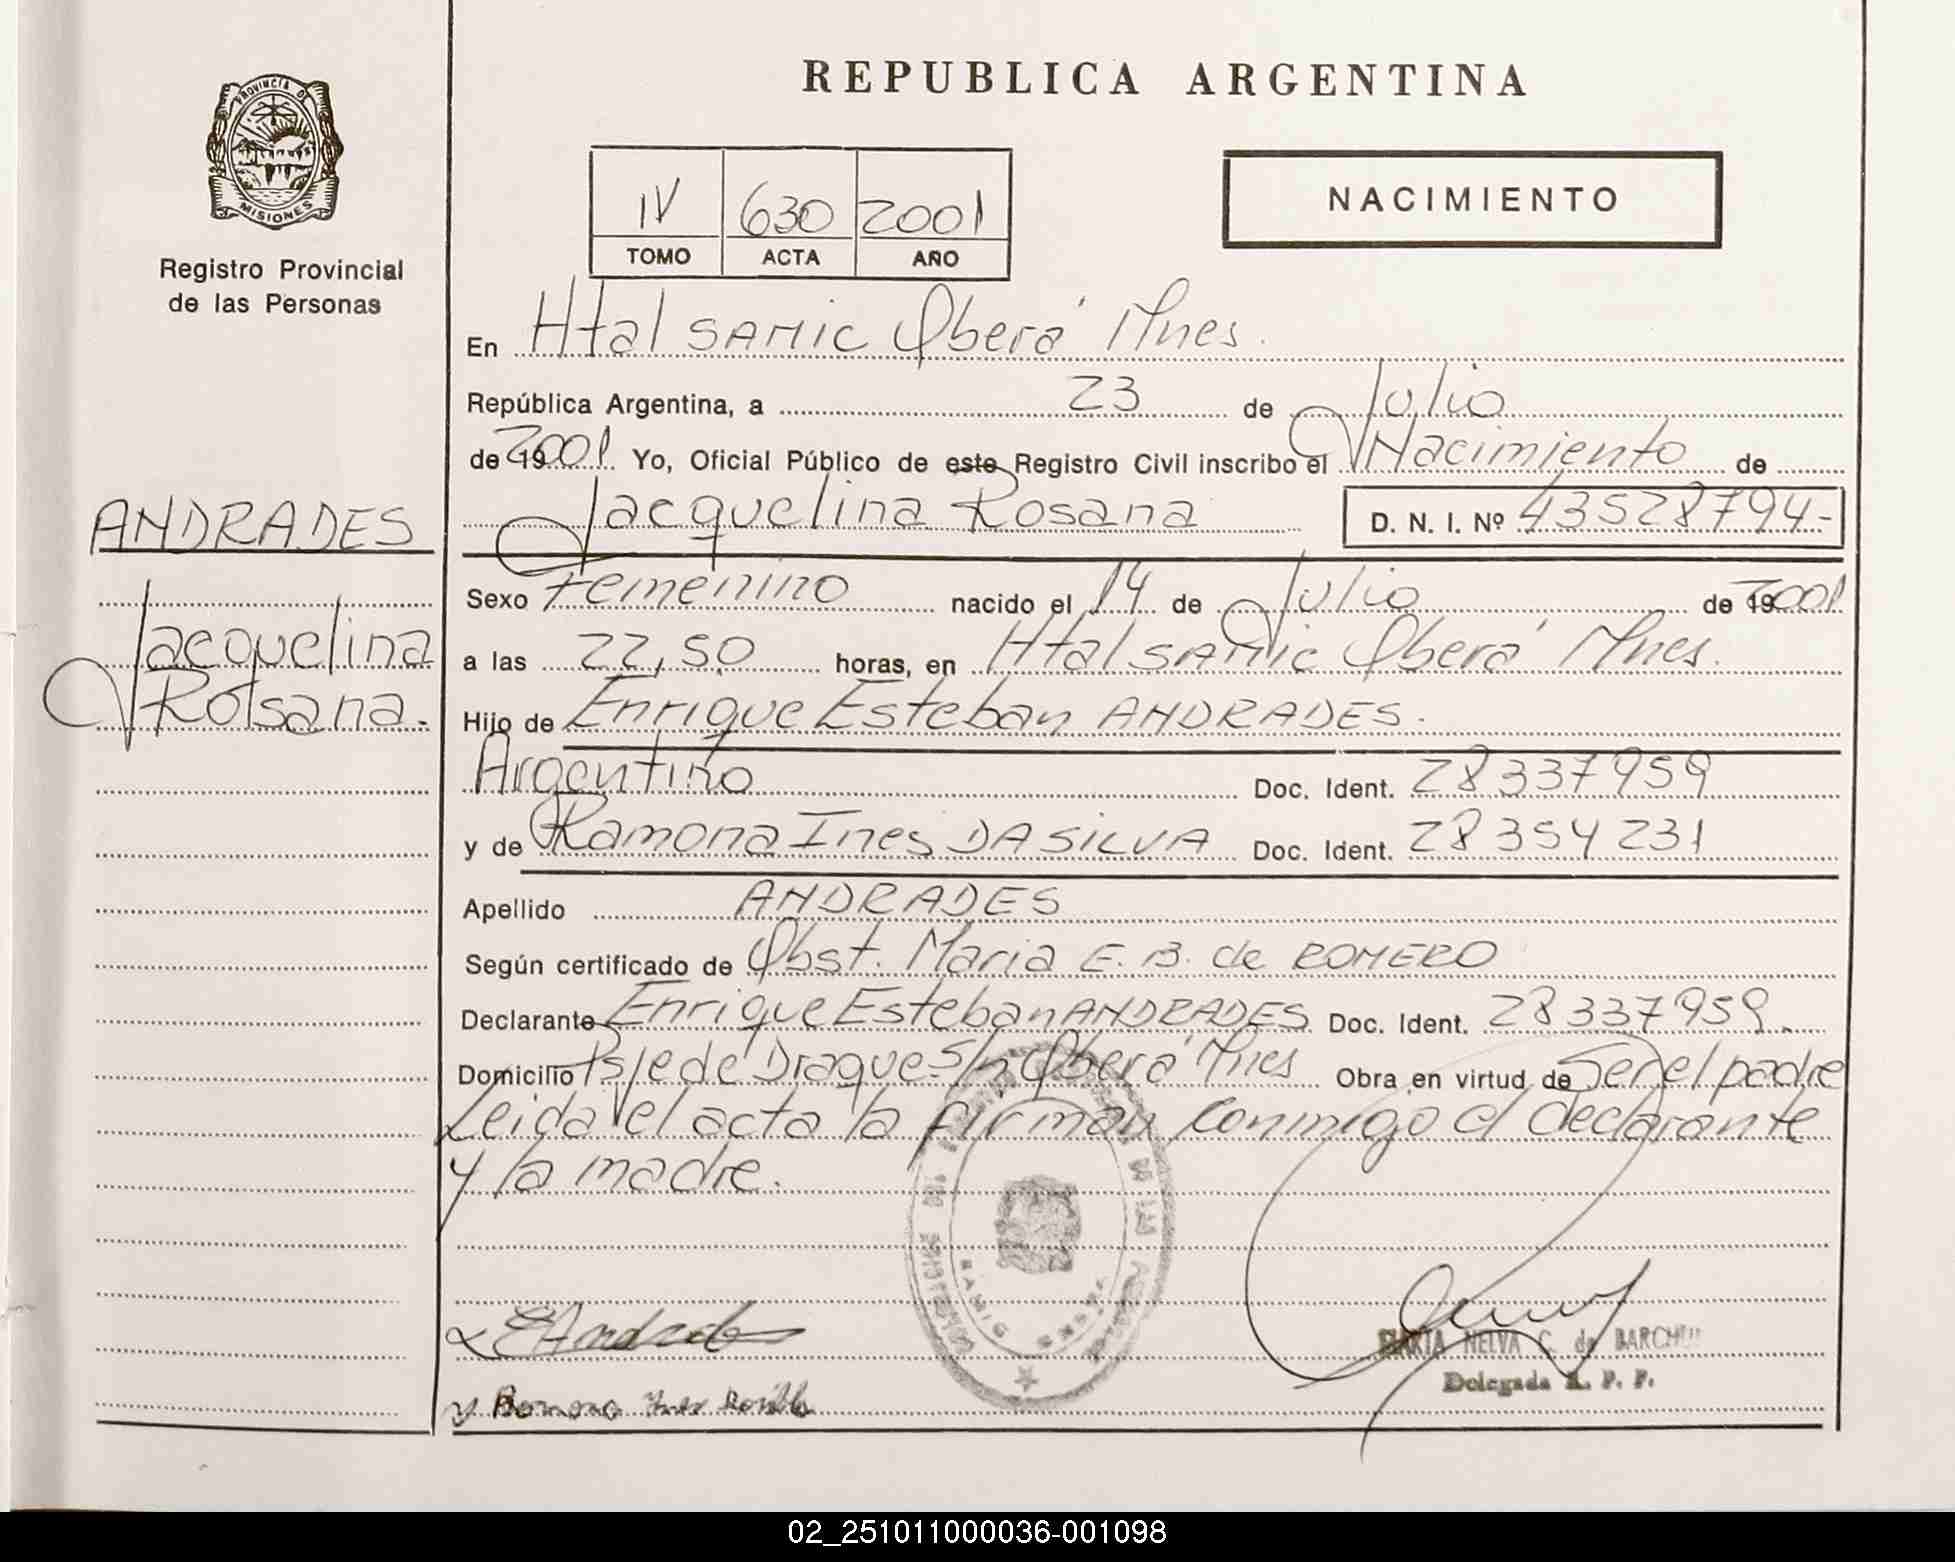 REPUBLICA ARGENTINA
PROVINCIA DE
MISIONES
Registro Provincial
de las Personas
IV 630 2001
TOMO ACTA AÑO
NACIMIENTO
En Htal SAMIC Oberá Mnes.
República Argentina, a 23 de Julio
de 2001 Yo, Oficial Público de este Registro Civil inscribo el Nacimiento de
Jacquelina Rosana D. N. I. Nº 43528794-
ANDRADES
Jacquelina
Rosana.
Sexo Femenino nacido el 14 de Julio de 2001
a las 22,50 horas, en Htal SAMIC Oberá Mnes.
Hijo de Enrique Esteban ANDRADES.
Argentino Doc. Ident. 28337959
y de Ramona Ines DA SILVA Doc. Ident. 28354231
Apellido ANDRADES
Según certificado de Obst. Maria E. B. de ROMERO
Declarante Enrique Esteban ANDRADES Doc. Ident. 28337959.
Domicilio Psje de Drague S/n Oberá Mnes Obra en virtud de Ser el padre
Leida el acta la firman conmigo el declarante
y la madre.
EAndrade
Ramona Ines
NELVA C. de
Delegada R. P. P.
02_251011000036-001098